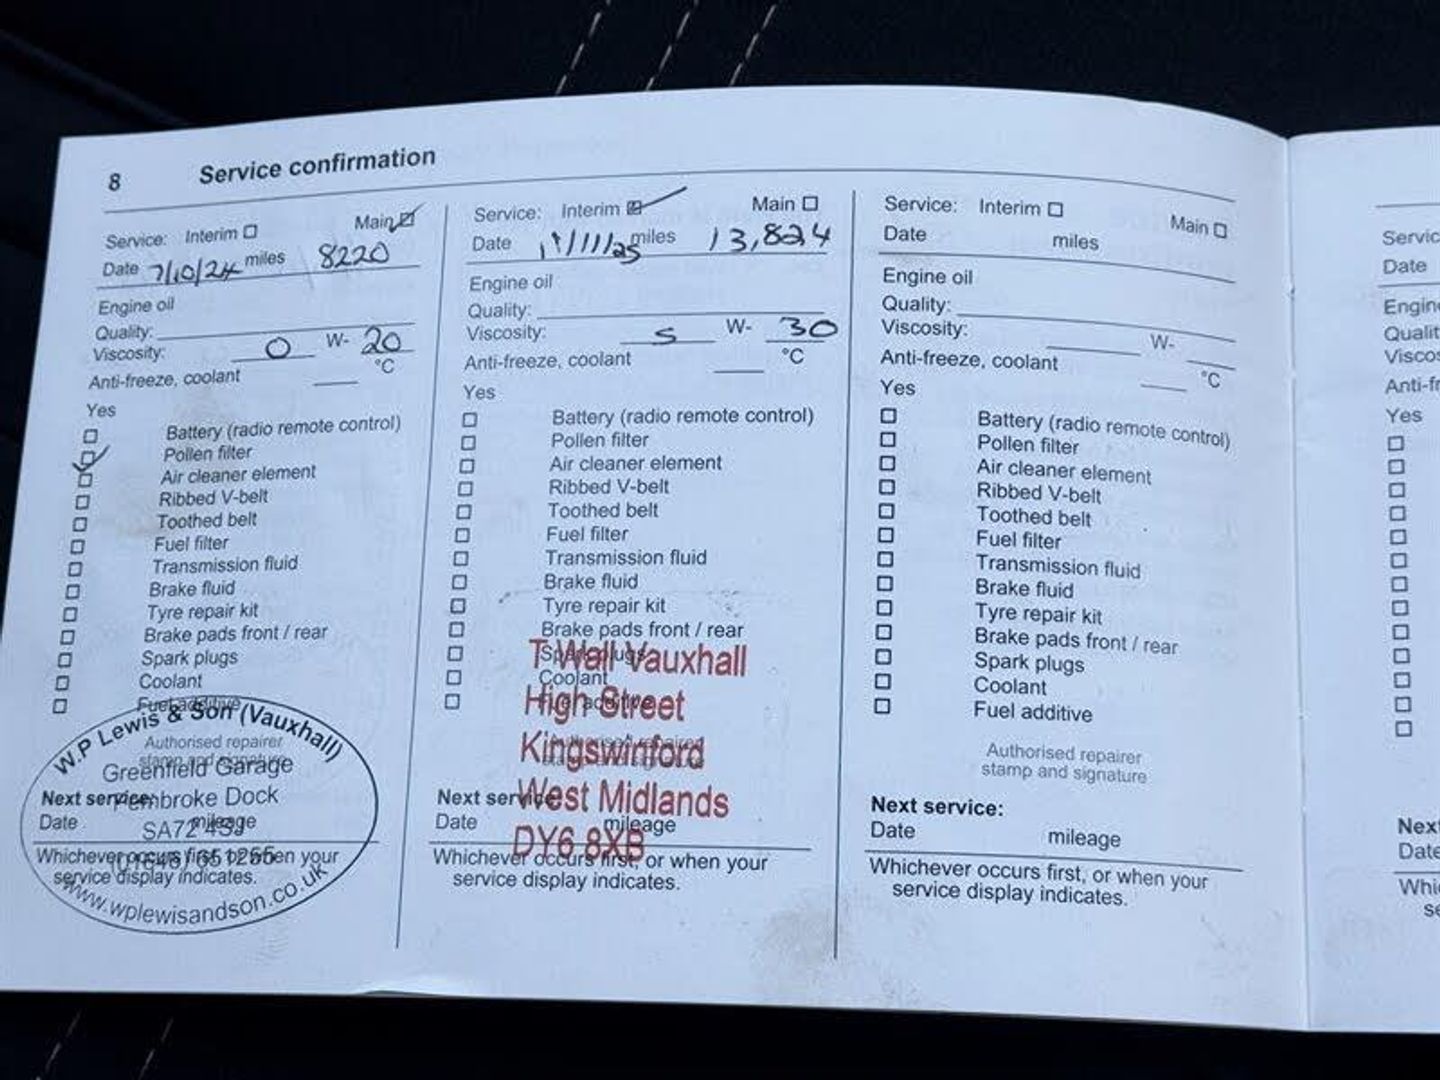 8 Service confirmation
Service: Interim Main
Date 7/10/24 miles 8220
Engine oil
Quality:
Viscosity: 0 W- 20
Anti-freeze, coolant °C
Yes
Battery (radio remote control)
Pollen filter
Air cleaner element
Ribbed V-belt
Toothed belt
Fuel filter
Transmission fluid
Brake fluid
Tyre repair kit
Brake pads front / rear
Spark plugs
Coolant
Fuel additive
Authorised repairer
stamp and signature
W.P Lewis & Son (Vauxhall)
Greenfield Garage
Pembroke Dock
SA72 4SJ
651255
www.wplewisandson.co.uk
Next service:
Date mileage
Whichever occurs first, or when your
service display indicates.
Service: Interim Main
Date 11/11/25 miles 13,824
Engine oil
Quality:
Viscosity: 5 W- 30
Anti-freeze, coolant °C
Yes
Battery (radio remote control)
Pollen filter
Air cleaner element
Ribbed V-belt
Toothed belt
Fuel filter
Transmission fluid
Brake fluid
Tyre repair kit
Brake pads front / rear
Spark plugs
Coolant
Fuel additive
Authorised repairer
stamp and signature
T Wall Vauxhall
High Street
Kingswinford
West Midlands
DY6 8XB
Next service:
Date mileage
Whichever occurs first, or when your
service display indicates.
Service: Interim Main
Date miles
Engine oil
Quality:
Viscosity: W-
Anti-freeze, coolant °C
Yes
Battery (radio remote control)
Pollen filter
Air cleaner element
Ribbed V-belt
Toothed belt
Fuel filter
Transmission fluid
Brake fluid
Tyre repair kit
Brake pads front / rear
Spark plugs
Coolant
Fuel additive
Authorised repairer
stamp and signature
Next service:
Date mileage
Whichever occurs first, or when your
service display indicates.
Servic
Date
Engin
Qualit
Visco
Anti-fr
Yes
Next
Date
Whi
se